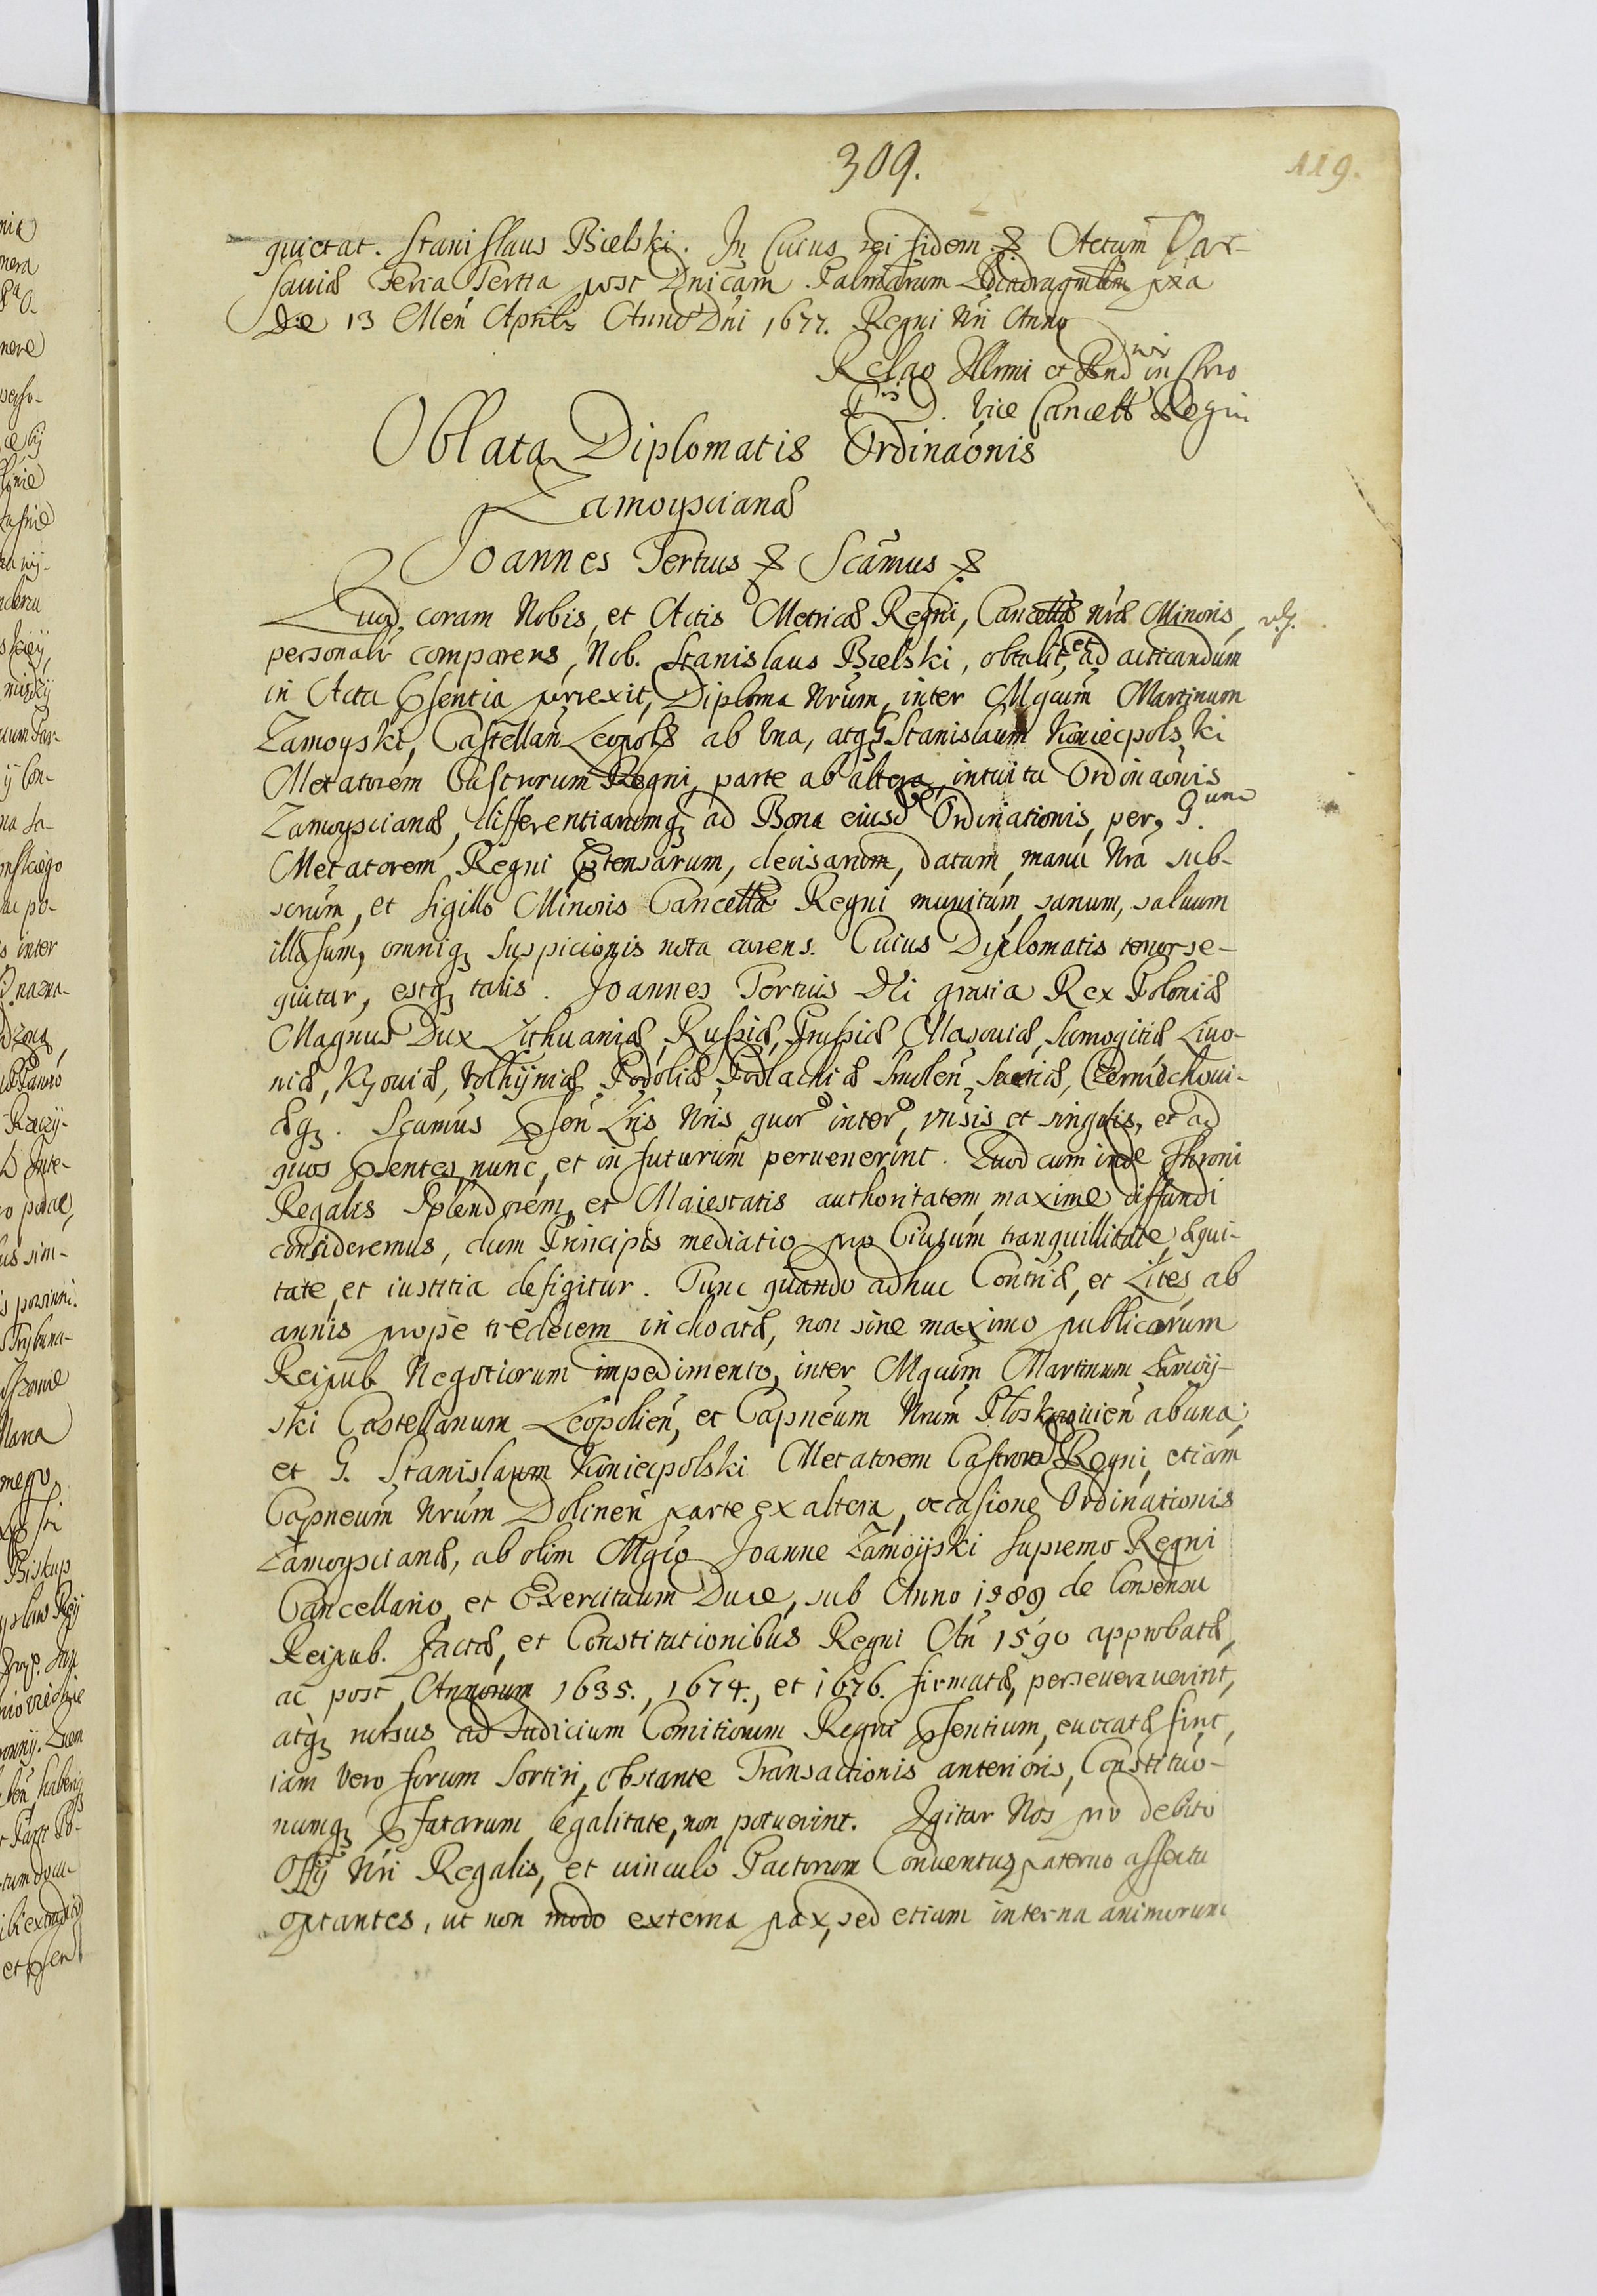 309.
119.
quietat. Stanislaus Bielski. In Cuius rei fidem & Actum Var-
saviæ Feria Tertia post Dnicam Palmarum Quadragmlem pxa
Die 13 Men Aprilis Anno Dni 1677. Regni Nri Anno
Relao Illrmi et Rnd in Chro
Pris D. Vice Cancell Regni
Oblata Diplomatis Ordinaonis
Zamoyscianæ
Joannes Tertius & Scamus &
Quod coram Nobis, et Actis Metricæ Regni, Cancellæ Nræ Minoris,
personalr comparens, Nob. Stanislaus Bielski, obtulit, et ad acticandum
in Acta Psentia porrexit, Diploma Nrum, inter Mgcum Martinum
Zamoyski, Castellan Leopols ab Una, atq G Stanislaum Koniecpolski
Metatorem Castrorum Regni, parte ab altera, intuitu Ordinaonis
Zamoyscianæ, differentiarumq ad Bona eiusd Ordinationis, per G.
Metatorem Regni Ptensarum, decisarum, datum, manu Nra sub-
scrum, et Sigillo Minoris Cancellæ Regni munitum, sanum, saluum
illæsum, omniq suspicionis nota carens. Cuius Diplomatis tenor se-
quitur, estq talis. Joannes Tertius Dei gratia Rex Poloniæ
Magnus Dux Lithuaniæ, Russiæ, Prussiæ Masouiæ, Samogitiæ Liuo-
niæ, Kyouiæ, Volhijniæ, Podoliæ Podlachiæ Smolen, Seueriæ, Czerniechoui-
æq. Scamus Psen Lris Nris, quor inter, vnisis et singulis, et ad
quos Psentes, nunc, et in futurum peruenerint. Quod cum inde Throni
Regalis Splendorem, et Maiestatis authoritatem maxime diffundi
consideremus, dum Principis mediatio pro Ciuium tranquillitate, æqui-
tate, et iustitia desigitur. Tunc quando adhuc Contriæ, et Lites, ab
annis prope tredecim inchoatæ, non sine maximo publicarum
Reipub Negotiorum impedimento, inter Mgcum Martinum Zamoij-
ski Castellanum Leopolien, et Capneum Nrum Ploskirouien ab una,
et G. Stanislaum Koniecpolski Metatorem Castrora Regni, etiam
Capneum Nrum Dolinen parte ex altera, occasione Ordinationis
Zamoyscianæ, ab olim Mgco Joanne Zamoijski Supremo Regni
Cancellario, et Exercituum Duce, sub Anno 1589 de Consensu
Reipub. factæ, et Constitutionibus Regni An 1590 approbatæ,
ac post Annorum 1635., 1674., et 1676. firmatæ, perseuerauerint,
atq rursus ad Judicium Comitiorum Regni Psentium, euocatæ sint,
iam vero forum Sortiri, obstante Transactionis anterioris, Constituo-
numq Pfatarum legalitate, non potuerint. Igitur Nos pro debito
Offij Nri Regalis, et uinculo Pactorum Conuentus, paterno affectu
optantes, ut non modo externa pax, sed etiam interna animorum